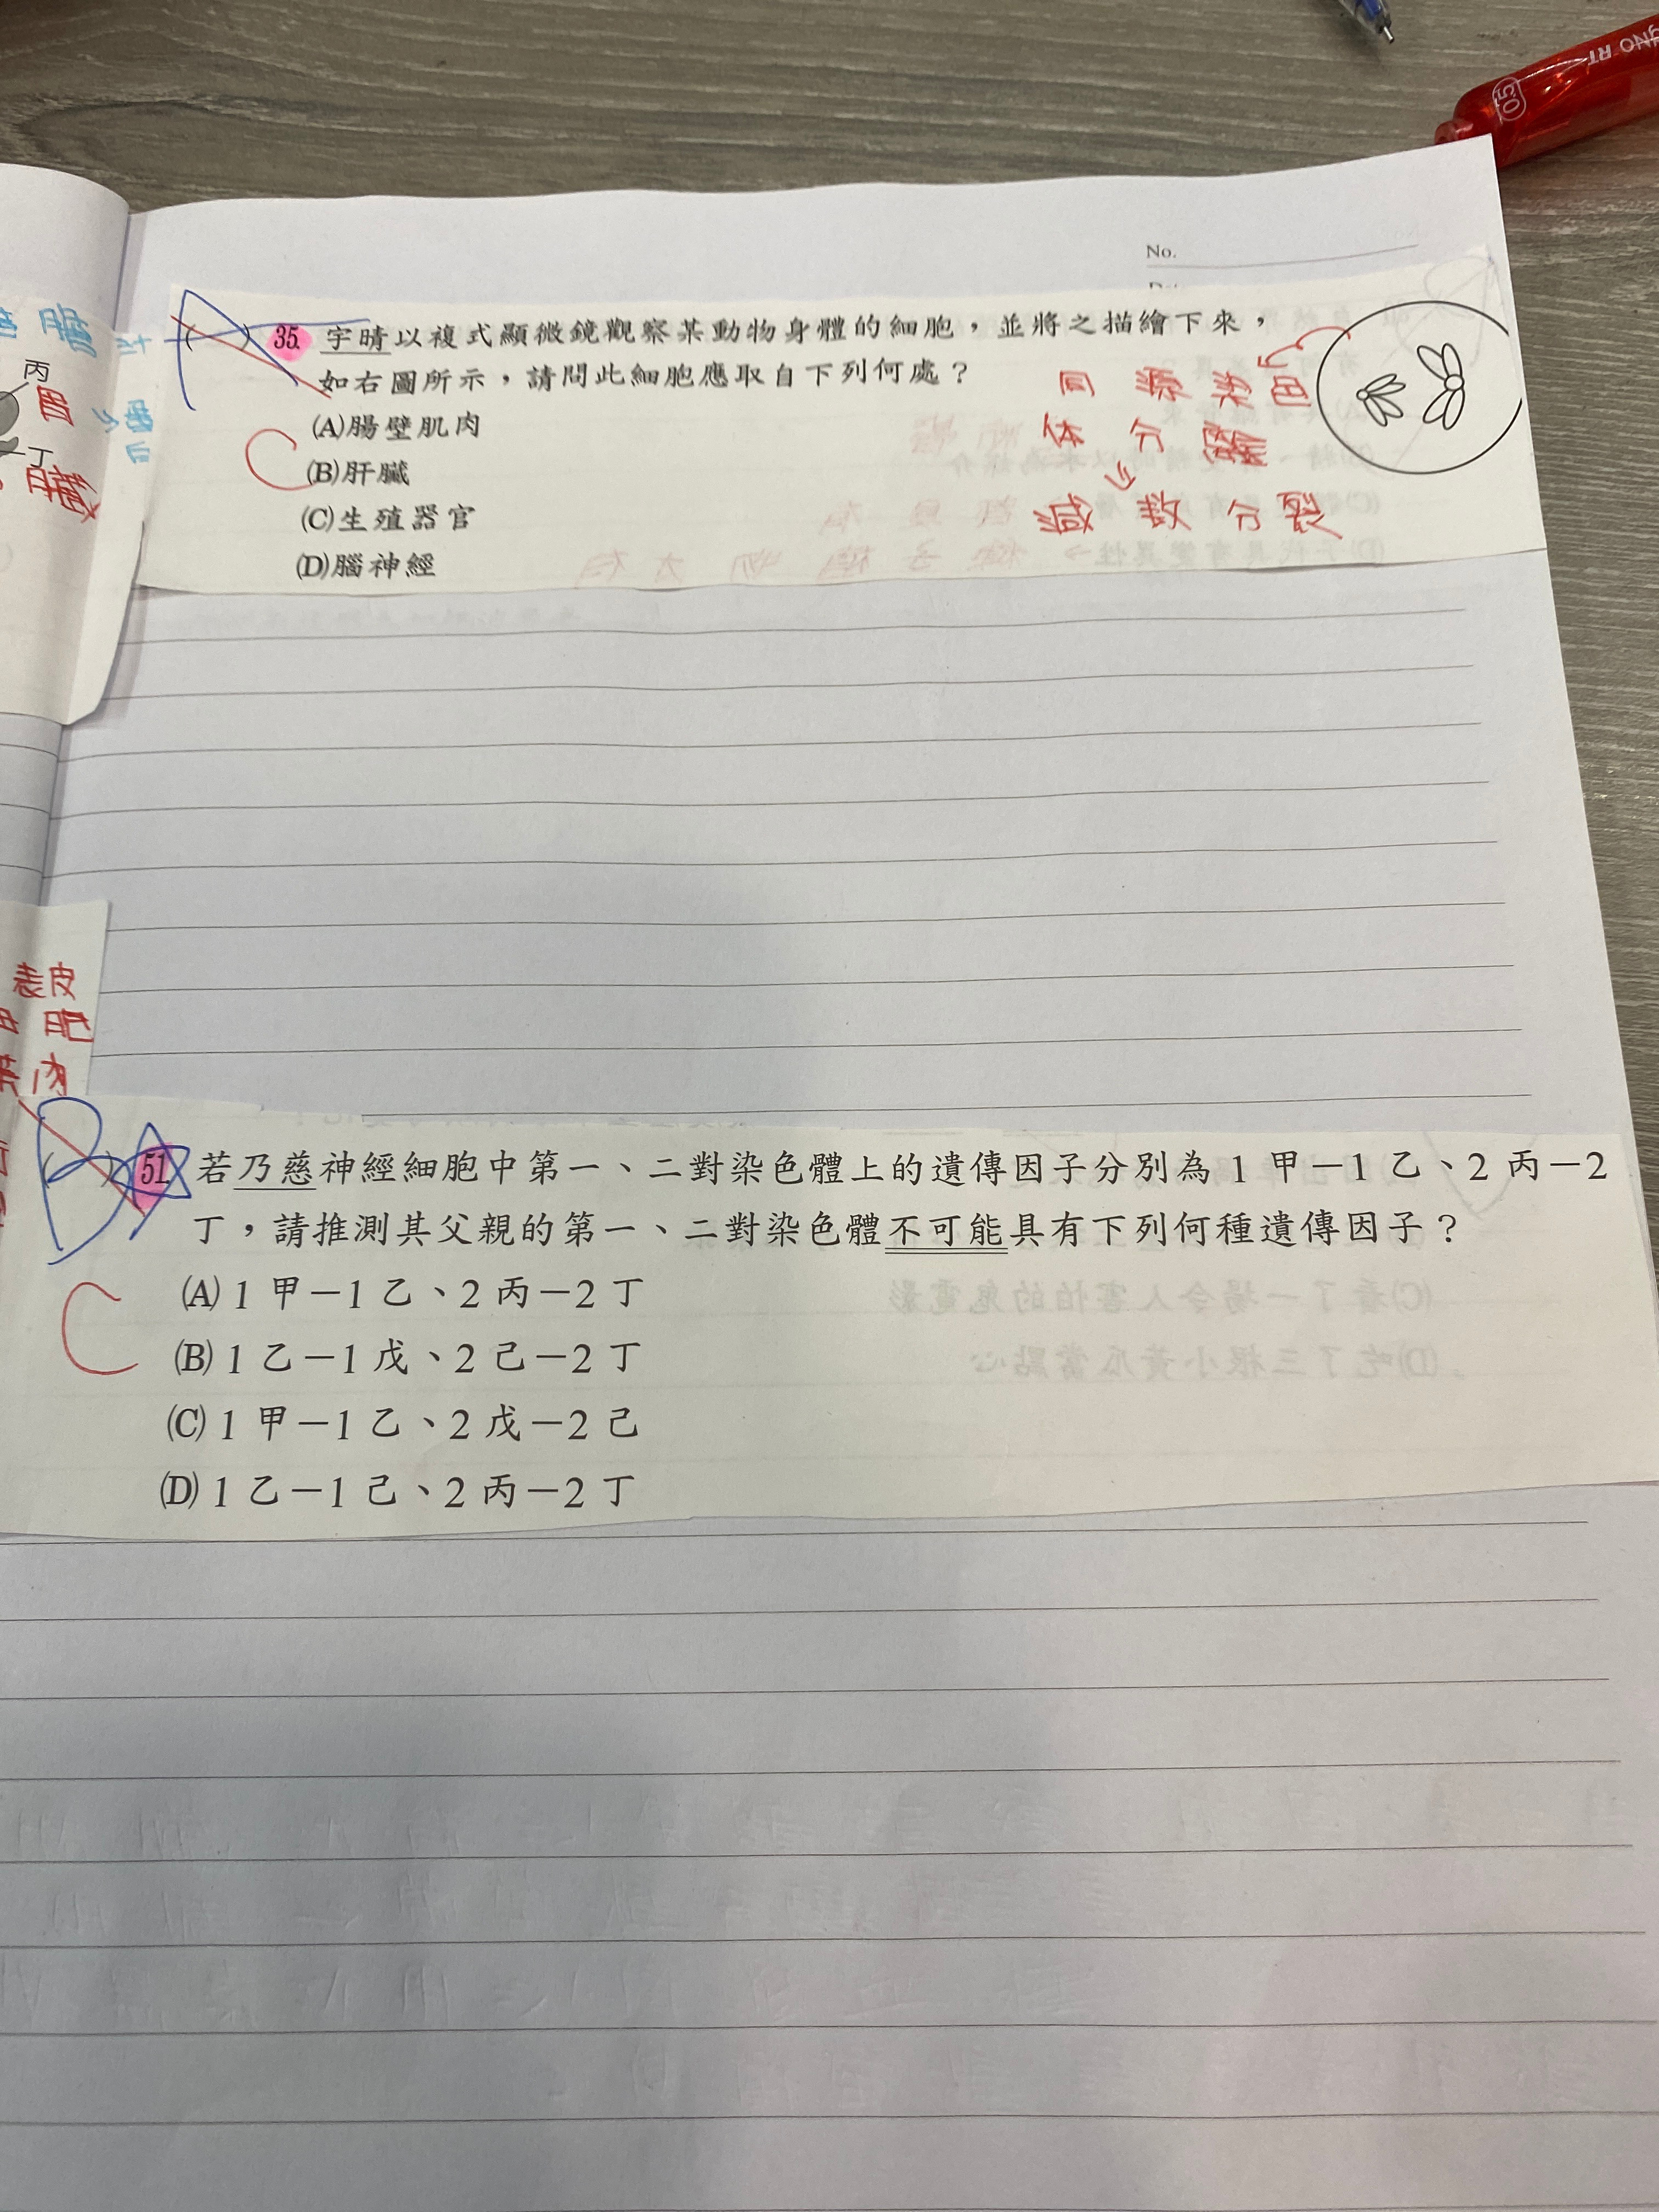 No.
( ) 35. 宇晴以複式顯微鏡觀察某動物身體的細胞，並將之描繪下來，
如右圖所示，請問此細胞應取自下列何處？
(A)腸壁肌肉
(B)肝臟
(C)生殖器官
(D)腦神經
A
C
同源染色
体分離
減數分裂
丙
胃
丁
臟
表皮
肥
肉
( ) 51. 若乃慈神經細胞中第一、二對染色體上的遺傳因子分別為 1 甲－1 乙、2 丙－2
丁，請推測其父親的第一、二對染色體不可能具有下列何種遺傳因子？
(A) 1 甲－1 乙、2 丙－2 丁
(B) 1 乙－1 戊、2 己－2 丁
(C) 1 甲－1 乙、2 戊－2 己
(D) 1 乙－1 己、2 丙－2 丁
B
C
(C)看了一場令人害怕的鬼電影
(D)吃了三根小黃瓜當點心。
RT
0.5